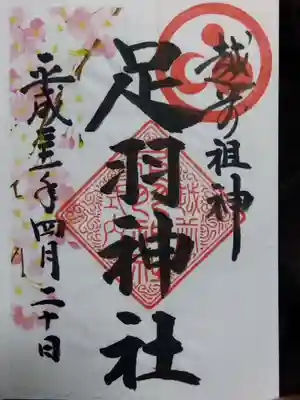 越前の祖神
足羽神社
平成 年四月二十日